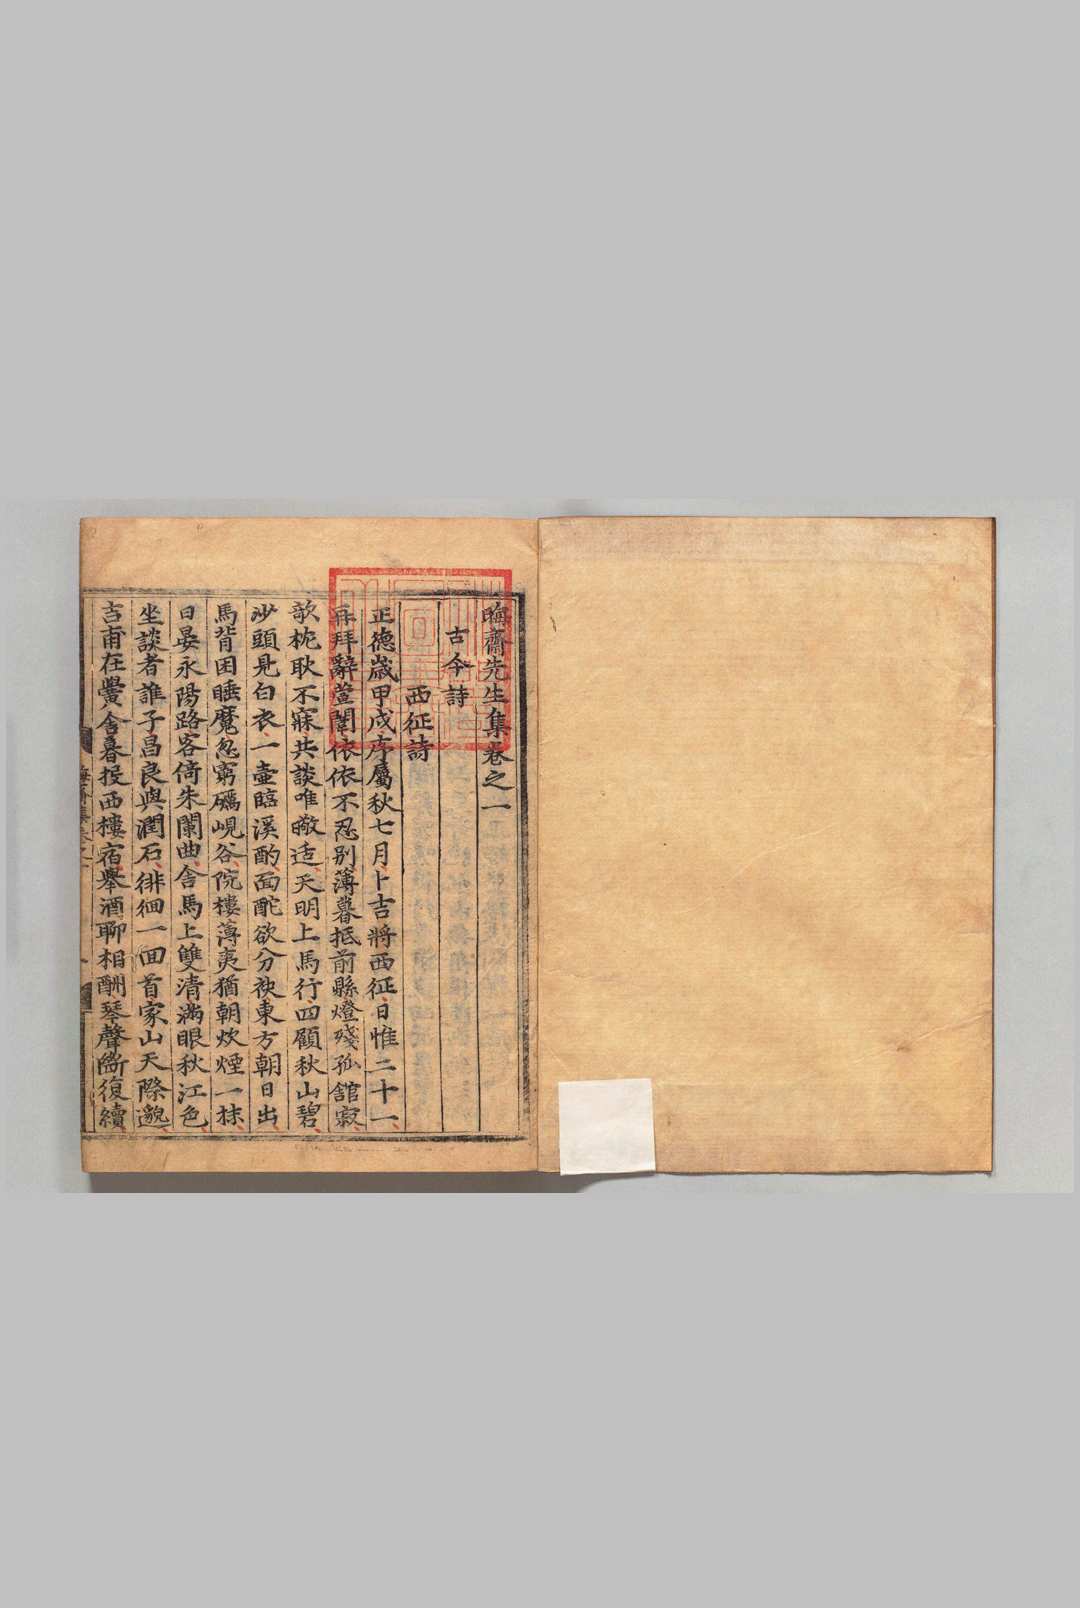 晦齋先生集卷之一
古今詩
西征詩
正德歲甲戌序屬秋七月卜吉將西征日惟二十一
再拜辭萱闈依依不忍別薄暮抵前縣燈殘孤舘寂
欹枕耿不寐共談唯曔适天明上馬行四顧秋山碧
沙頭見白衣一壺臨溪酌面酡欲分袂東方朝日出
馬背困睡魔忽窮礪峴谷院樓薄夷猶朝炊煙一抹
日晏永陽路客倚朱闌曲舎馬上雙清滿眼秋江色
坐談者誰子昌良與潤石徘徊一回首家山天際邈
吉甫在黌舍暮投西樓宿擧酒聊相酬琴聲斷復續